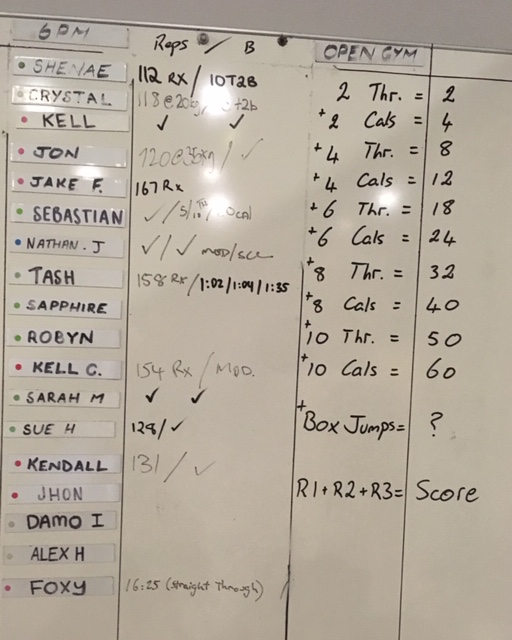 6PM Reps / B
SHENAE 112 Rx / 10T2B
CRYSTAL 118@20kg
KELL ✓ ✓
JON 120@35kg / ✓
JAKE F. 167 Rx
SEBASTIAN ✓ /
NATHAN. J ✓ / ✓ MOD/SCL
TASH 158 Rx / 1:02/1:04/1:35
SAPPHIRE
ROBYN
KELL C. 154 Rx / MOD.
SARAH M ✓ ✓
SUE H 128/✓
KENDALL 131 / ✓
JHON
DAMO I
ALEX H
FOXY 16:25 (straight Through)
OPEN GYM
2 Thr. = 2
+2 Cals = 4
+4 Thr. = 8
+4 Cals = 12
+6 Thr. = 18
+6 Cals = 24
+8 Thr. = 32
+8 Cals = 40
+10 Thr. = 50
+10 Cals = 60
+Box Jumps = ?
R1+R2+R3= Score